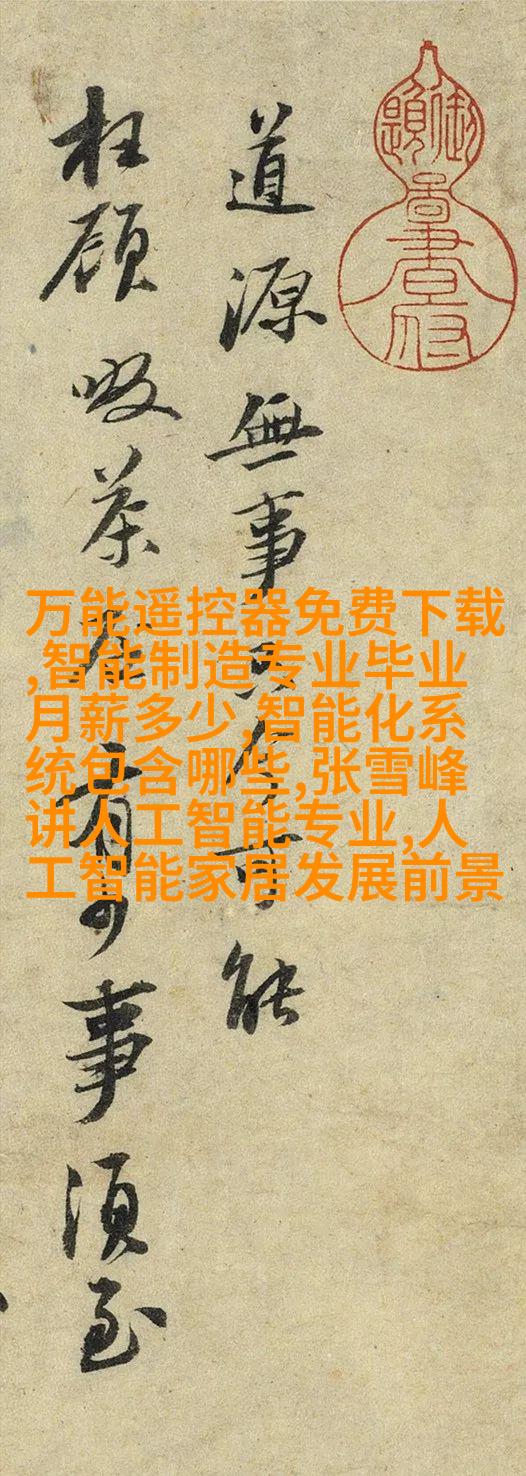 道源無事只今可能
枉顧啜茶否有少事須至
万能遥控器免费下载
,智能制造专业毕业
月薪多少,智能化系
统包含哪些,张雪峰
讲人工智能专业,人
工智能家居发展前景